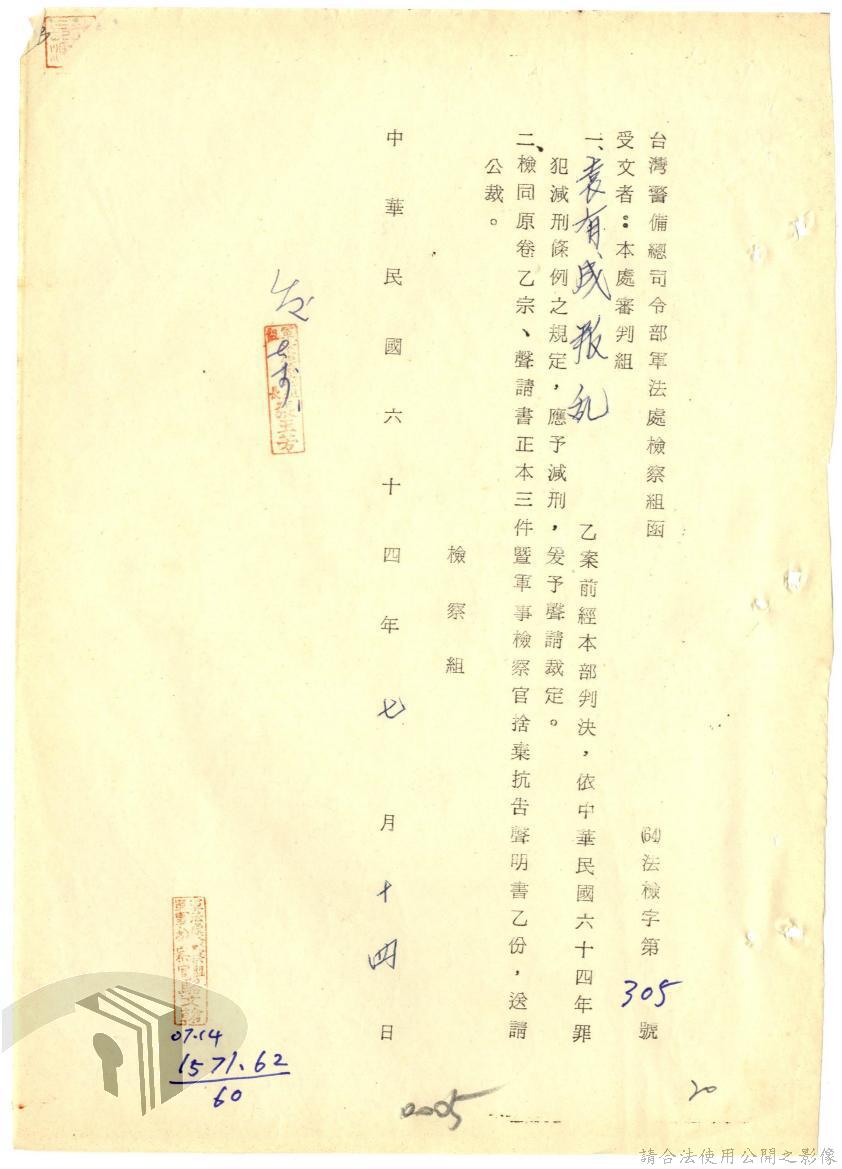 台灣警備總司令部軍法處檢察組函
(64)法檢字第305號
受文者：本處審判組
一、袁有成叛乱乙案前經本部判決，依中華民國六十四年罪
犯減刑條例之規定，應予減刑，爰予聲請裁定。
二、檢同原卷乙宗、聲請書正本三件暨軍事檢察官捨棄抗告聲明書乙份，送請
公裁。
檢察組
中華民國六十四年七月十四日
07.14
1571.62
60
0005
20
請合法使用公開之影像